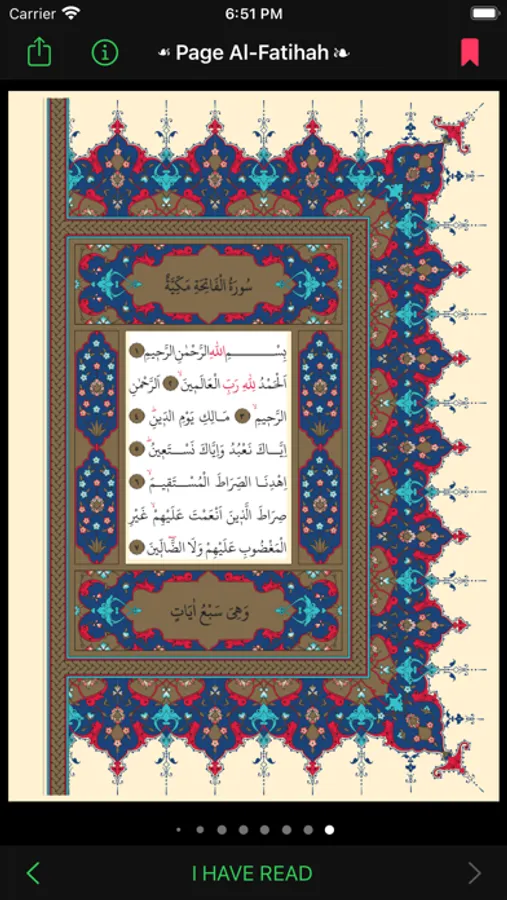 Carrier 6:51 PM
☙ Page Al-Fatihah ❧
سُورَةُ الْفَاتِحَةِ مَكِّيَّةٌ
بِسْــــــــمِ اللهِ الرَّحْمٰنِ الرَّحِيمِ ١
اَلْحَمْدُ لِلّٰهِ رَبِّ الْعَالَمِينَۙ ٢ اَلرَّحْمٰنِ
الرَّحِيمِۙ ٣ مَالِكِ يَوْمِ الدِّينِۜ ٤
اِيَّاكَ نَعْبُدُ وَاِيَّاكَ نَسْتَعِينُۜ ٥
اِهْدِنَا الصِّرَاطَ الْمُسْتَقِيمَۙ ٦
صِرَاطَ الَّذِينَ اَنْعَمْتَ عَلَيْهِمْۙ غَيْرِ
الْمَغْضُوبِ عَلَيْهِمْ وَلَا الضَّٓالِّينَ ٧
وَهِيَ سَبْعُ اٰيَاتٍ
I HAVE READ